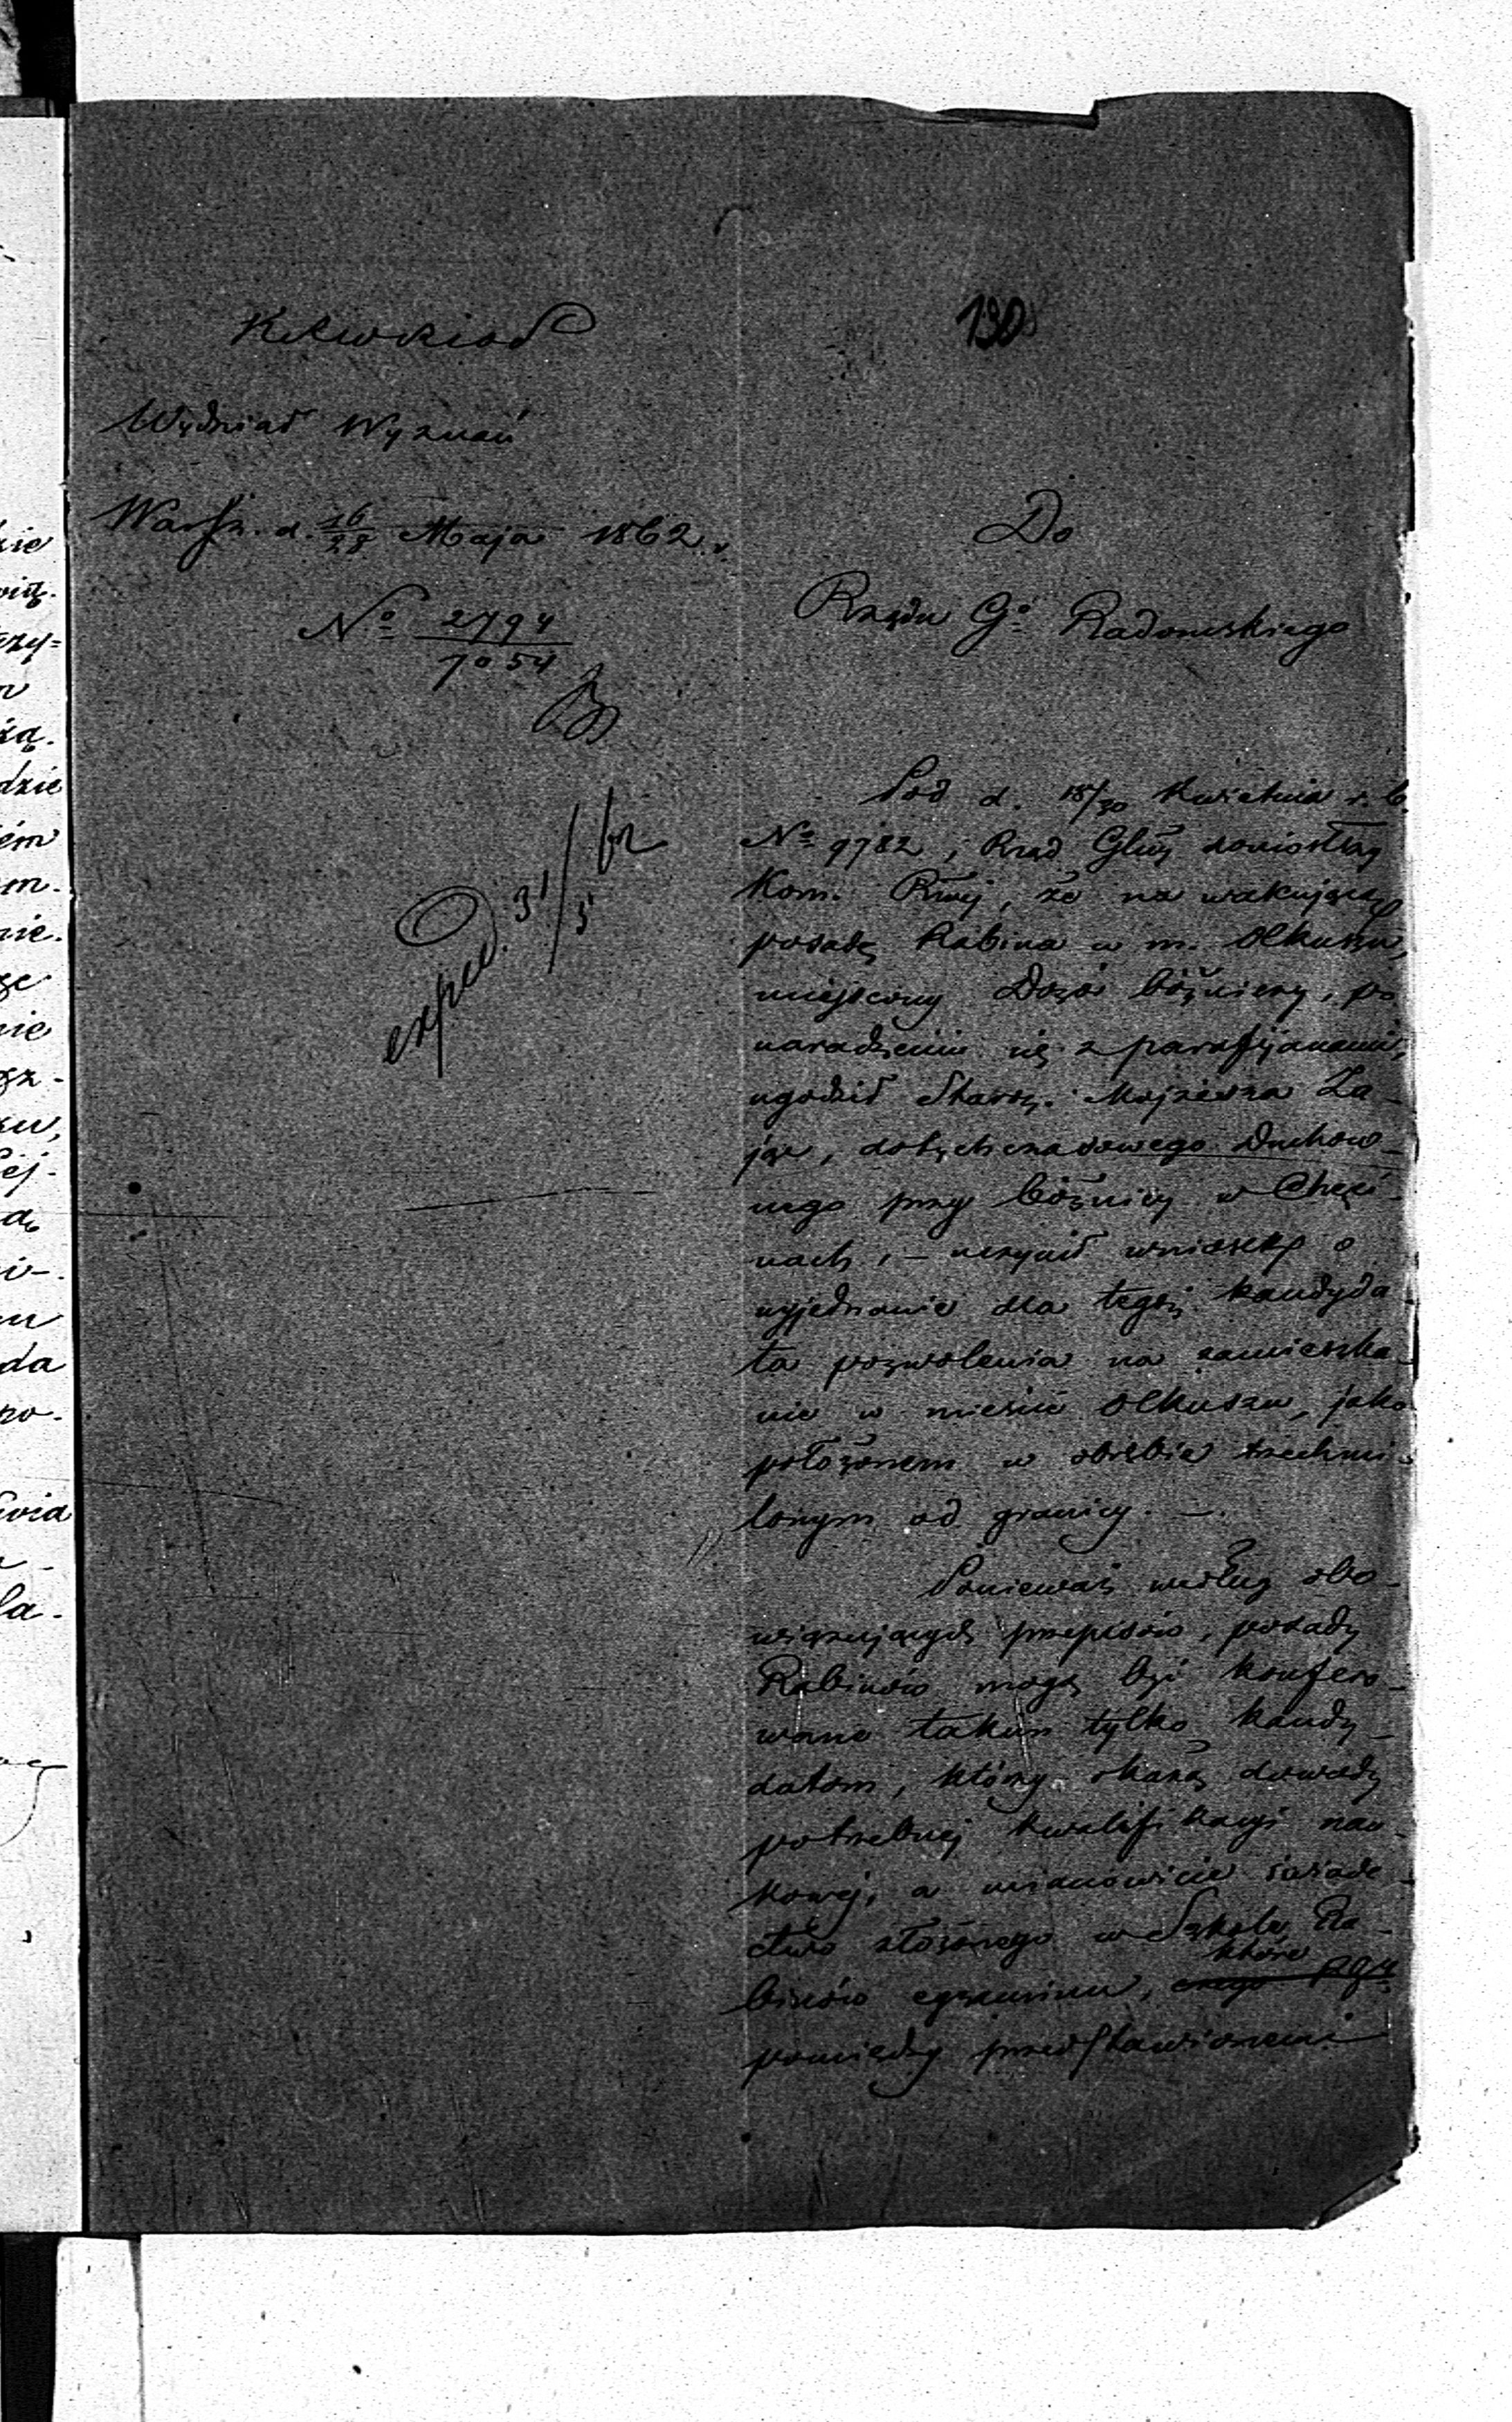 130
Wydział Wyznań
Warsz. d. 16/28 Maja 1862.
No 2794/7054
exped. 31/5 62
Do
Rządu Go Radomskiego
Pod d. 18/30 Kwietnia r. b.
No 9782, Rząd Glny doniósłszy
Kom. Rwej, że na wakującą
posadę Rabina w m. Olkuszu,
miejscowy Dozór bóżniczy, po
naradzeniu się z parafijanami,
ugodził Starz. Mojżesza Za-
jąc, dotychczasowego Duchow-
nego przy bóżnicy w Chęci-
nach, – uczynił wniosek o
wyjednanie dla tegoż kandyda-
ta pozwolenia na zamieszka-
nie w mieście Olkuszu, jako
położonem w obrębie trzechmi-
lowym od granicy. —.
Ponieważ według obo-
wiązujących przepisów, posady
Rabinów mogą być konfero-
wane takim tylko kandy-
datom, którzy okażą dowody
potrzebnej kwalifikacyi nau-
kowej, a mianowicie świade-
ctwo złożonego w Szkole Ra-
które
binów egzaminu,
pomiędzy przedstawionemi